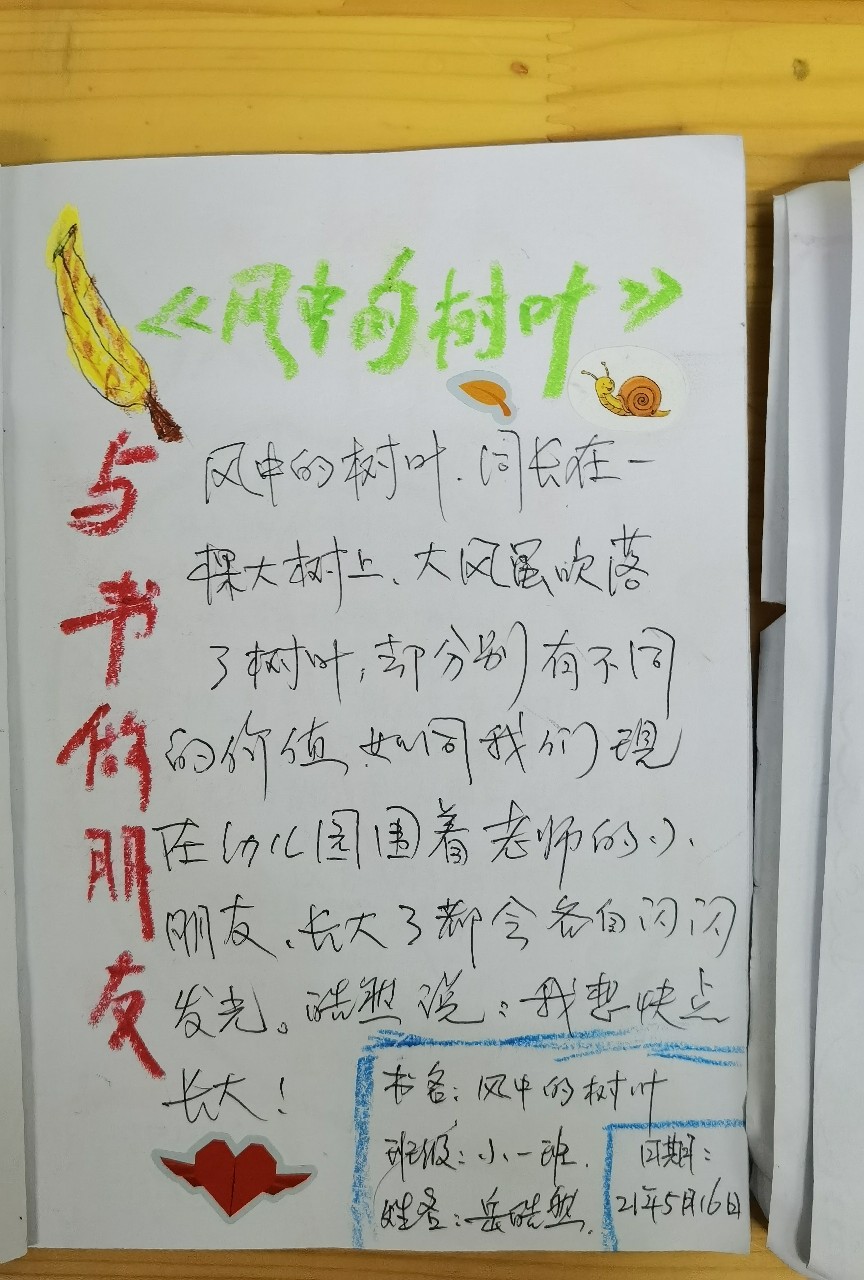 《风中的树叶》
与书做朋友
风中的树叶.同长在一
棵大树上、大风虽吹落
了树叶,却分别有不同
的价值,如同我们现
在幼儿园围着老师的小
朋友、长大了都会各自闪闪
发光。皓然说:我想快点
长大!
书名:风中的树叶
班级:小一班.
姓名:岳皓然.
日期:
21年5月16日